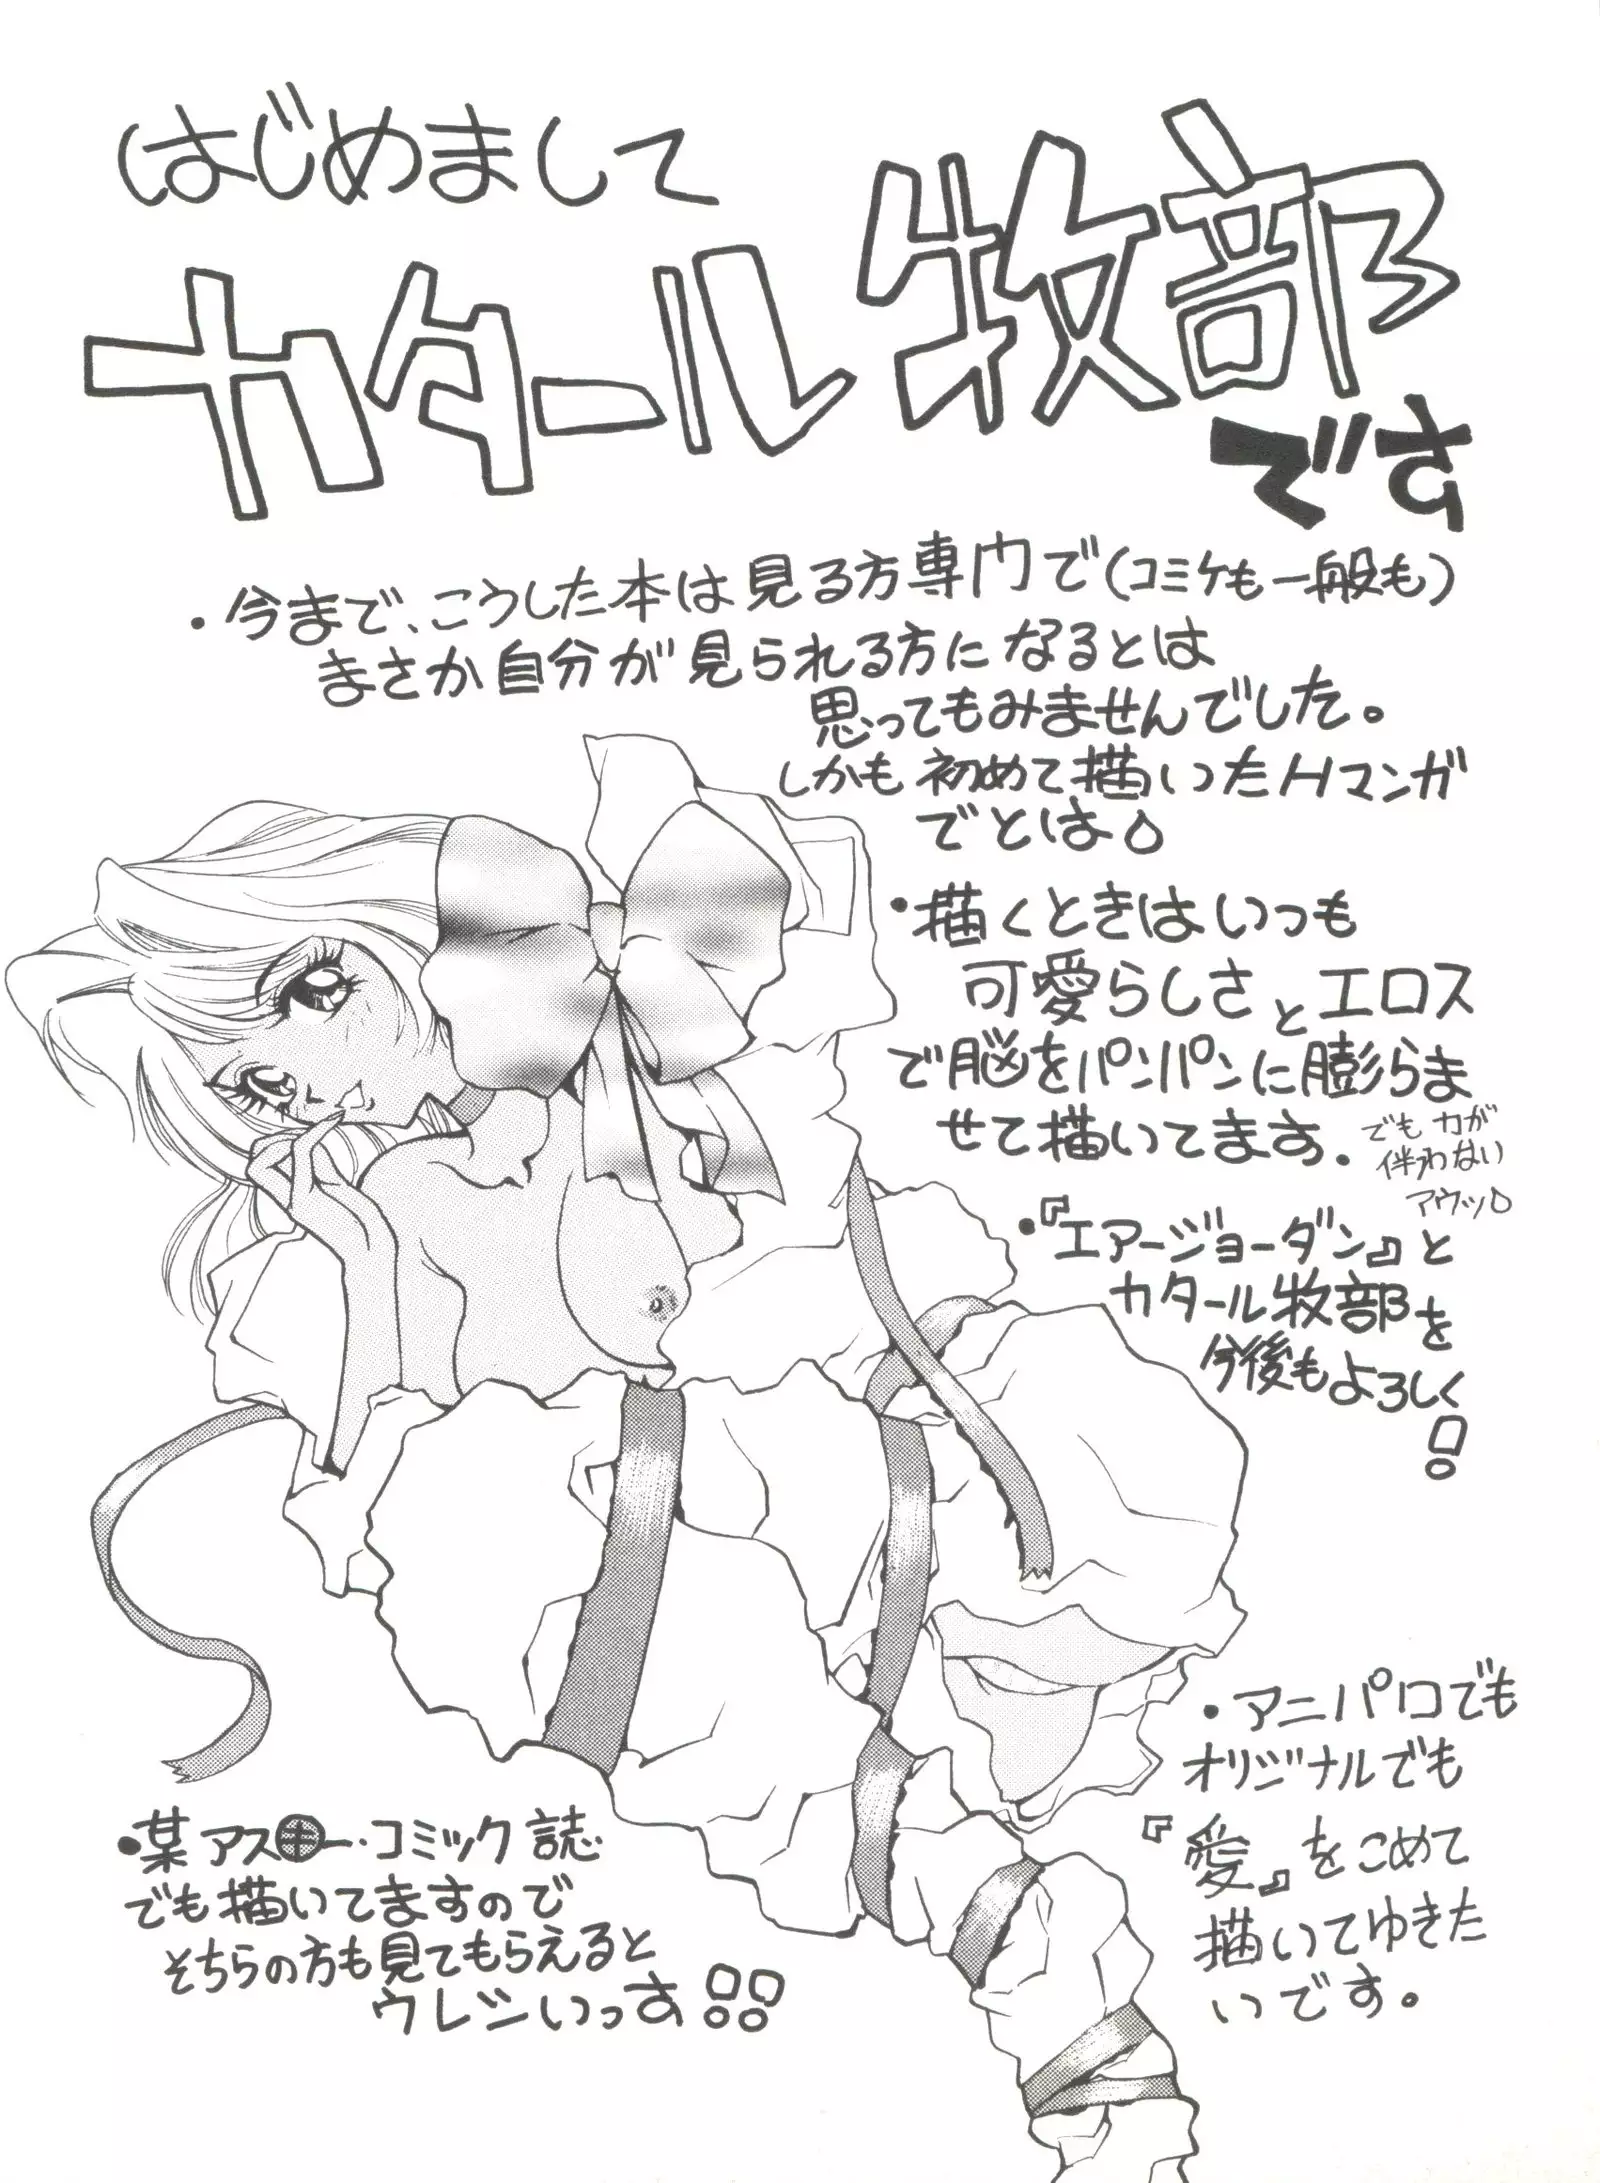 はじめまして
カタール牧部
でさ
・今まで、こうした本は見る方専門で(コミケも一般も)
まさか自分が見られる方になるとは
思ってもみませんでした。
しかも初めて描いたHマンガ
でとは
・描くときはいつも
可愛らしさとエロス
で脳をパンパンに膨らま
せて描いてます.
でも力が
伴わない
アウッ
・『エアージョーダン』と
カタール牧部を
今後もよろしく
!
・アニパロでも
オリジナルでも
『愛』をこめて
描いてゆきた
いです。
・某アス㊉ー・コミック誌
でも描いてますので
そちらの方も見てもらえると
ウレシいっす!!